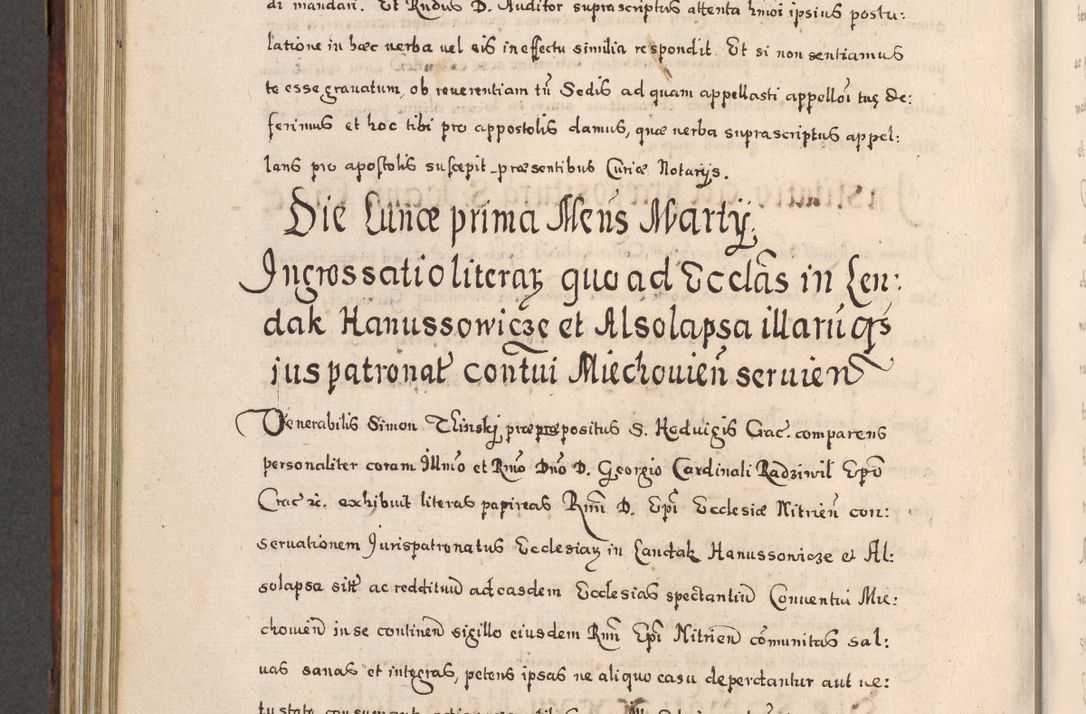 di mandari. Et Rndus D. Auditor suprascriptus attenta hmoi ipsius postu:
latione in hæc uerba uel eis in effectu similia respondit. Et si non sentiamus
te esse grauatum, ob reuerentiam tñ Sedis ad quam appellasti appelloi tuę de:
ferimus et hoc tibi pro appostolis damus, quæ uerba suprascriptus appel:
lans pro apostolis suscepit præsentibus Curiæ Notarijs.
Die Lunæ prima Mens Martij.
Ingrossatio literaꝝ quo ad Ecclãs in Len:
dak Hanussowicze et Alsolapsa illarũ qs
ius patronat contui Miechouieñ seruieñ
Venerabilis Simon præpositus S. Heduigis Crac. comparens
personaliter coram Illmo et Rmo Dno D. Georgio Cardinali Radziwil Epo
Crac &c. exhibuit literas papireas Rmi D. Epi Ecclesiæ Nitrieñ con:
seruationem Jurispatronatus Ecclesiaꝝ in Landak Hanussowicze et Al:
solapsa sitt ac reddituũ ad easdem Ecclesias spectantiũ Conuentui Mie:
chouieñ in se contineñ sigillo eiusdem Rmi Epi Nitrieñ cõmunitas sal:
uas sanas et integras, petens ipsas ne aliquo casu deperdantur aut ue: